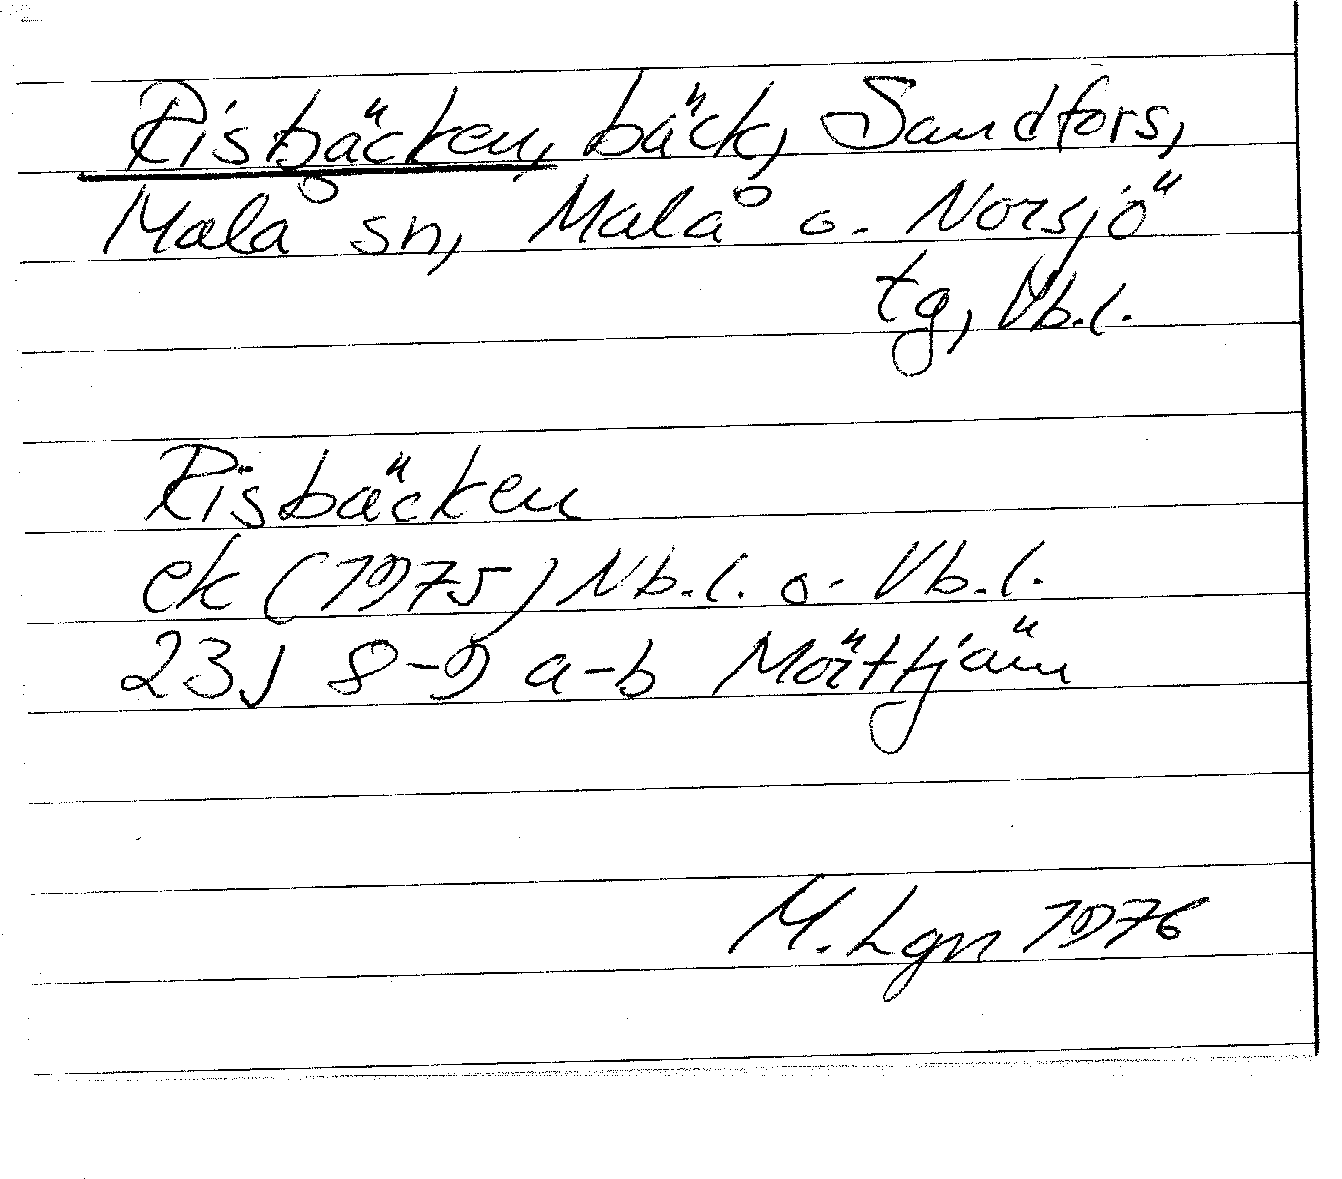 Risbäcken, bäck, Sandfors,
Malå sn, Malå o. Norsjö
tg, Vb.l.
Risbäcken
ek (1975) Nb.l. o. Vb.l.
23J 8-9 a-b Mörttjärn
M. Lgn 1976